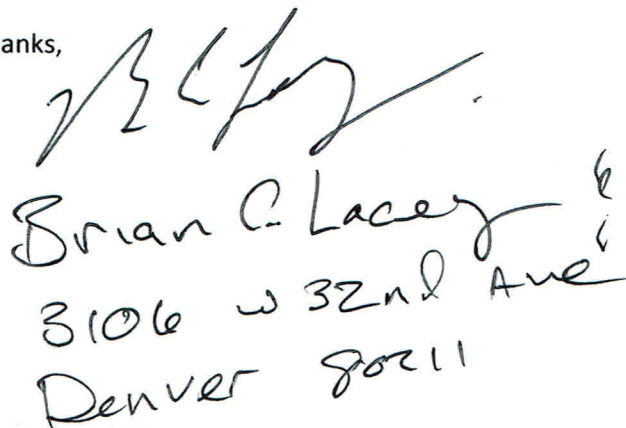 anks,
Brian C. Lacey &
3106 W 32nd Ave
Denver 80211